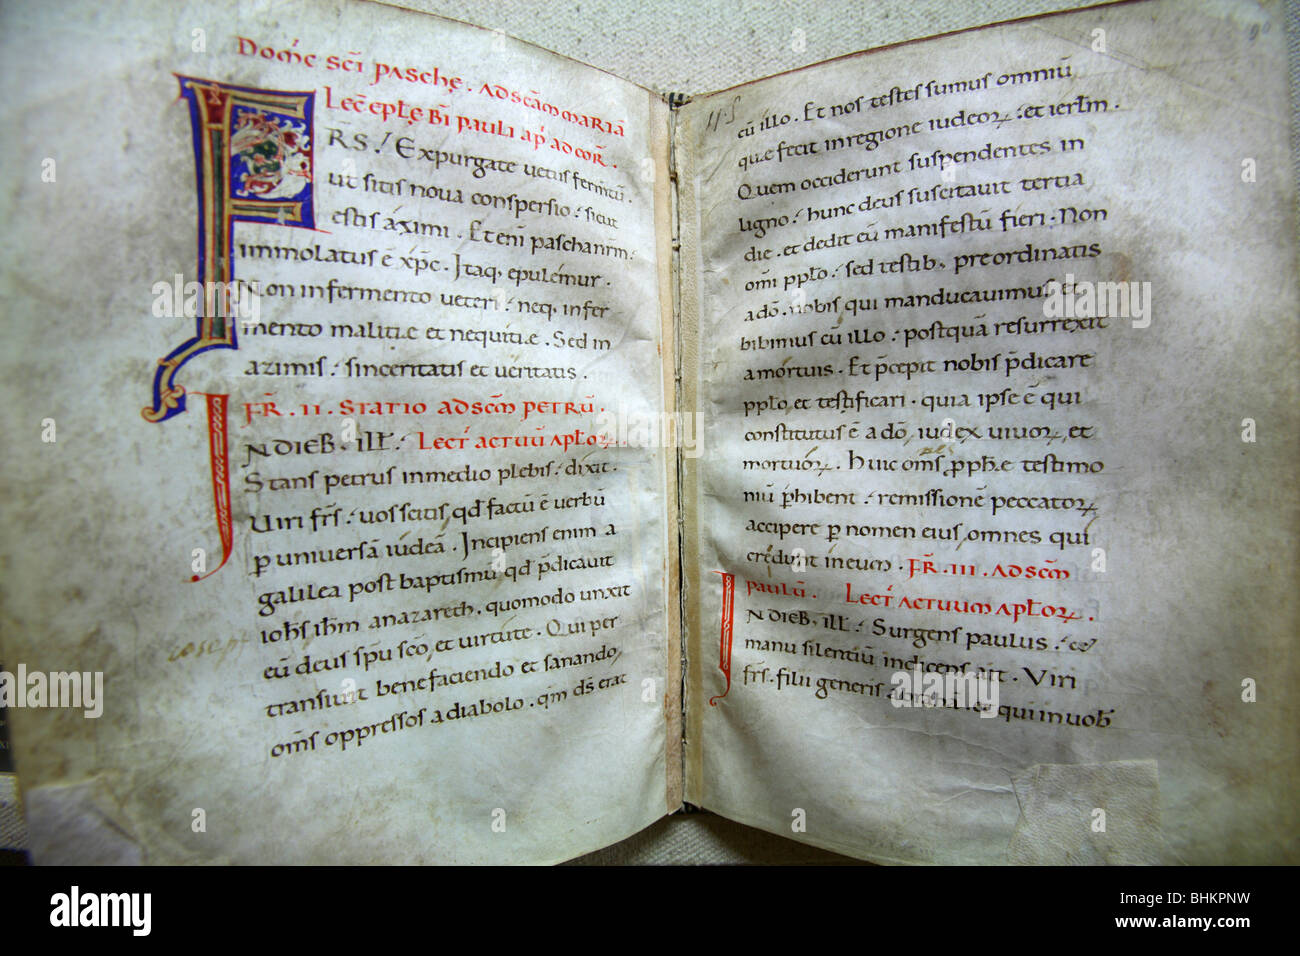 Domc sci pasche. Ad scam mariā
Lec epłe Bi pauli apl ad cor.
FRS. Expurgate vetus fermtū.
ut sitis nova conspersio. sicut
estis azimi. Et eni pascha nrm.
immolatus ē xpc. Itaq, epulemur.
Non in fermento veteri. neq, infer
mento malitie et nequitie. Sed in
azimis. sinceritatis et veritatis.
FR. II. Statio ad scm petrū.
IN DIEB. ILL. Lect actuū aplor.
Stans petrus in medio plebis. dixit.
Viri frs. vos scitis, qd factū ē verbū
p universā iudeā. Incipiens enim a
galilea post baptismū, qd pdicavit
iohs ihm a nazareth, quomodo unxit
eū deus spu sco, et virtute. Qui per
transivit benefaciendo et sanando,
oms oppressos a diabolo. qm ds erat
90
cū illo. Et nos testes sumus omniū
que fecit in regione iudeor. et ierlm.
Quem occiderunt suspendentes in
ligno. hunc deus suscitavit tertia
die. et dedit eū manifestū fieri. Non
omi pplo. sed testib, preordinatis
a do. nobis qui manducavimus, et
bibimus cū illo. postquā resurrexit
a mortuis. Et pcepit nobis pdicare
pplo, et testificari. quia ipse ē qui
constitutus ē a do, iudex vivor, et
mortuor. Huic oms pphe testimo
niū phibent. remissionē peccator
accipere p nomen eius, omnes qui
credunt in eum. FR. III. Ad scm
paulū. Lect actuum aplor.
IN DIEB. ILL. Surgens paulus. et
manu silentiū indicens ait. Viri
frs. filii generis abrahā. et qui in vob
alamy
Image ID: BHKPNW
www.alamy.com